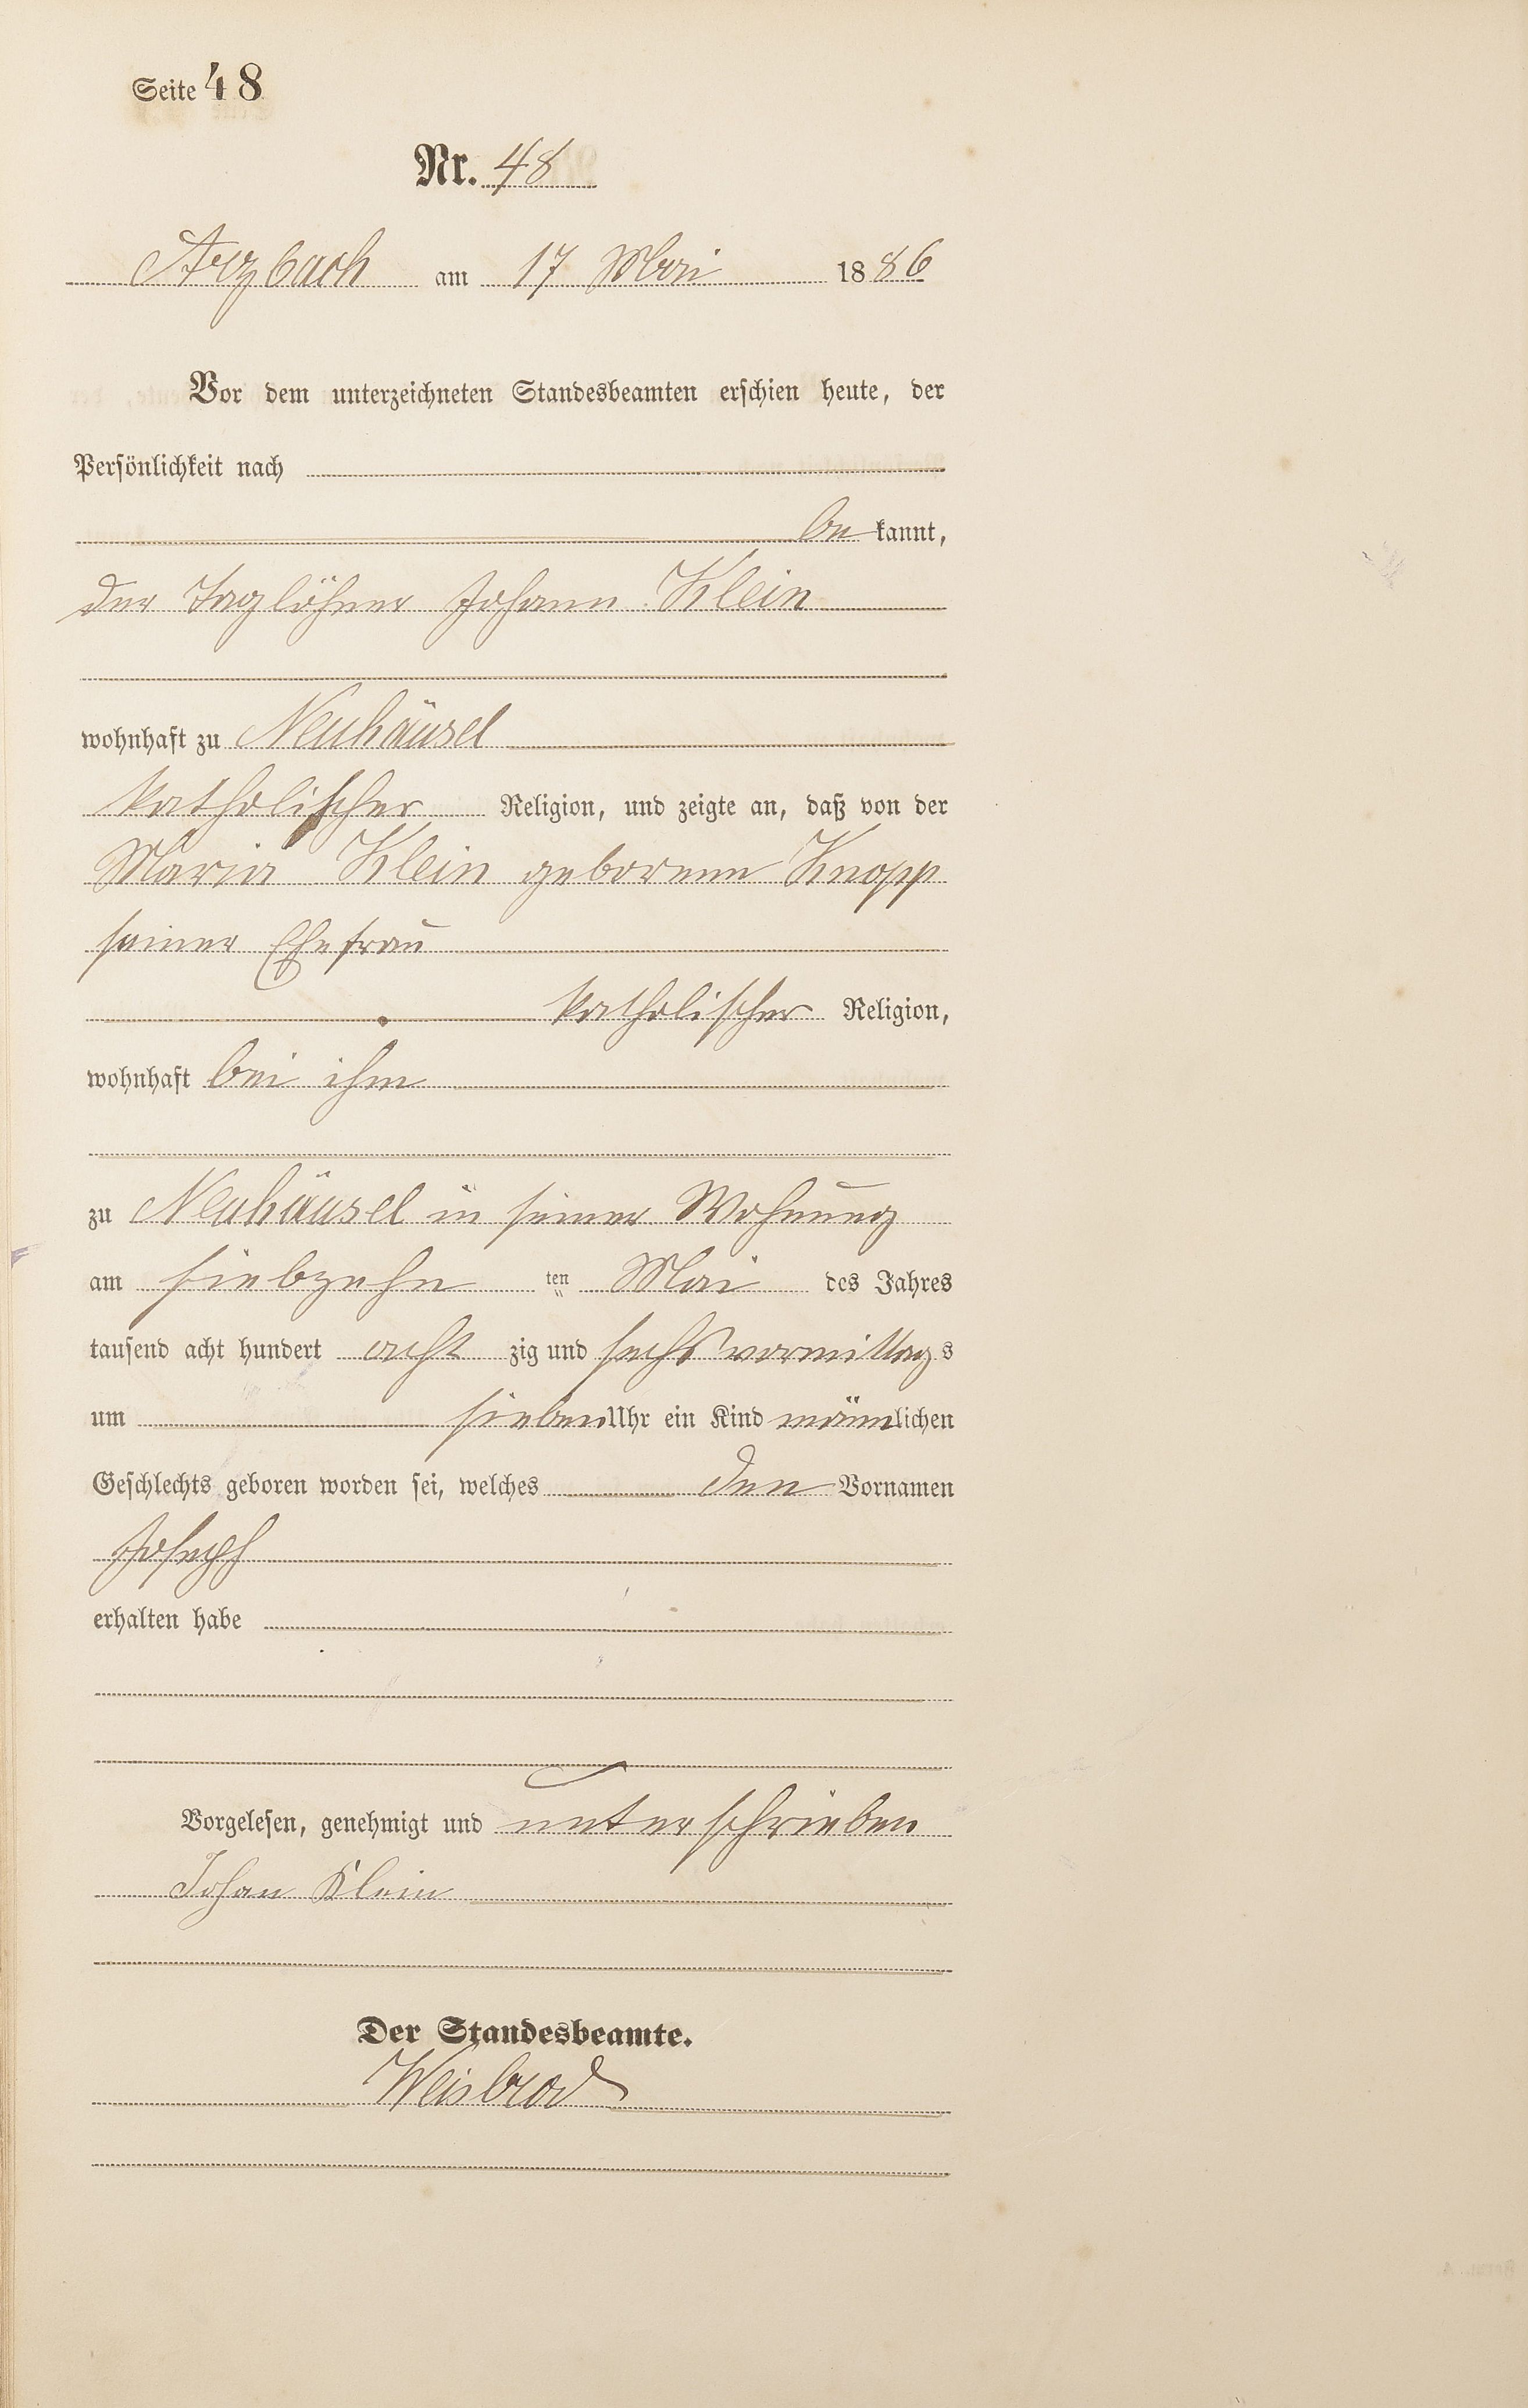 Seite 48
Nr. 48
Arzbach am 17 Mai 1886
Vor dem unterzeichneten Standesbeamten erschien heute, der
Persönlichkeit nach
be kannt,
der Taglöhner Johann Klein
wohnhaft zu Neuhäusel
katholischer Religion, und zeigte an, daß von der
Maria Klein geborenen Knopp
seiner Ehefrau
katholischer Religion,
wohnhaft bei ihm
zu Neuhäusel in seiner Wohnung
am siebzehn ten Mai des Jahres
tausend acht hundert acht zig und sechs vormittags
um sieben Uhr ein Kind männlichen
Geschlechts geboren worden sei, welches den Vornamen
Joseph
erhalten habe
Vorgelesen, genehmigt und unterschrieben
Johan Klein
Der Standesbeamte.
Weisbrod